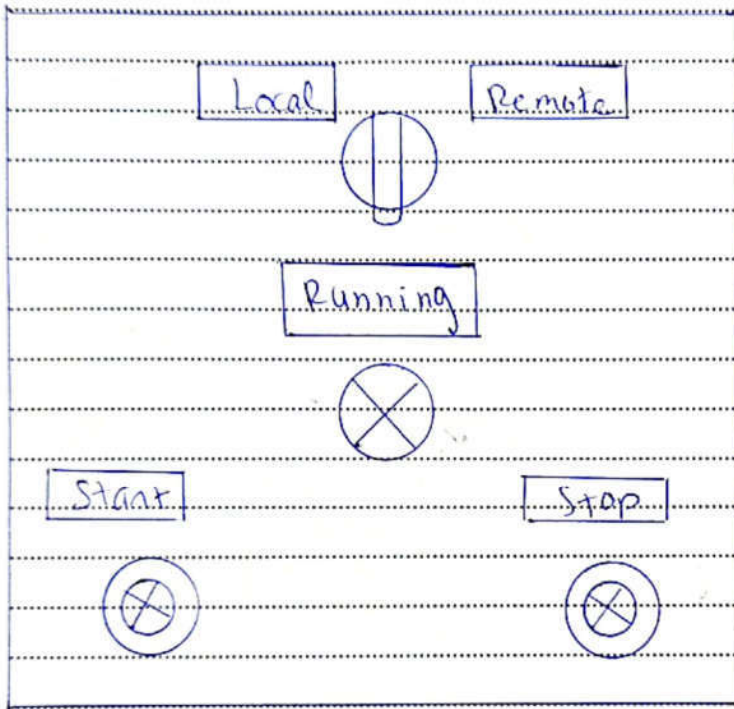 Local
Remote
Running
Start
Stop